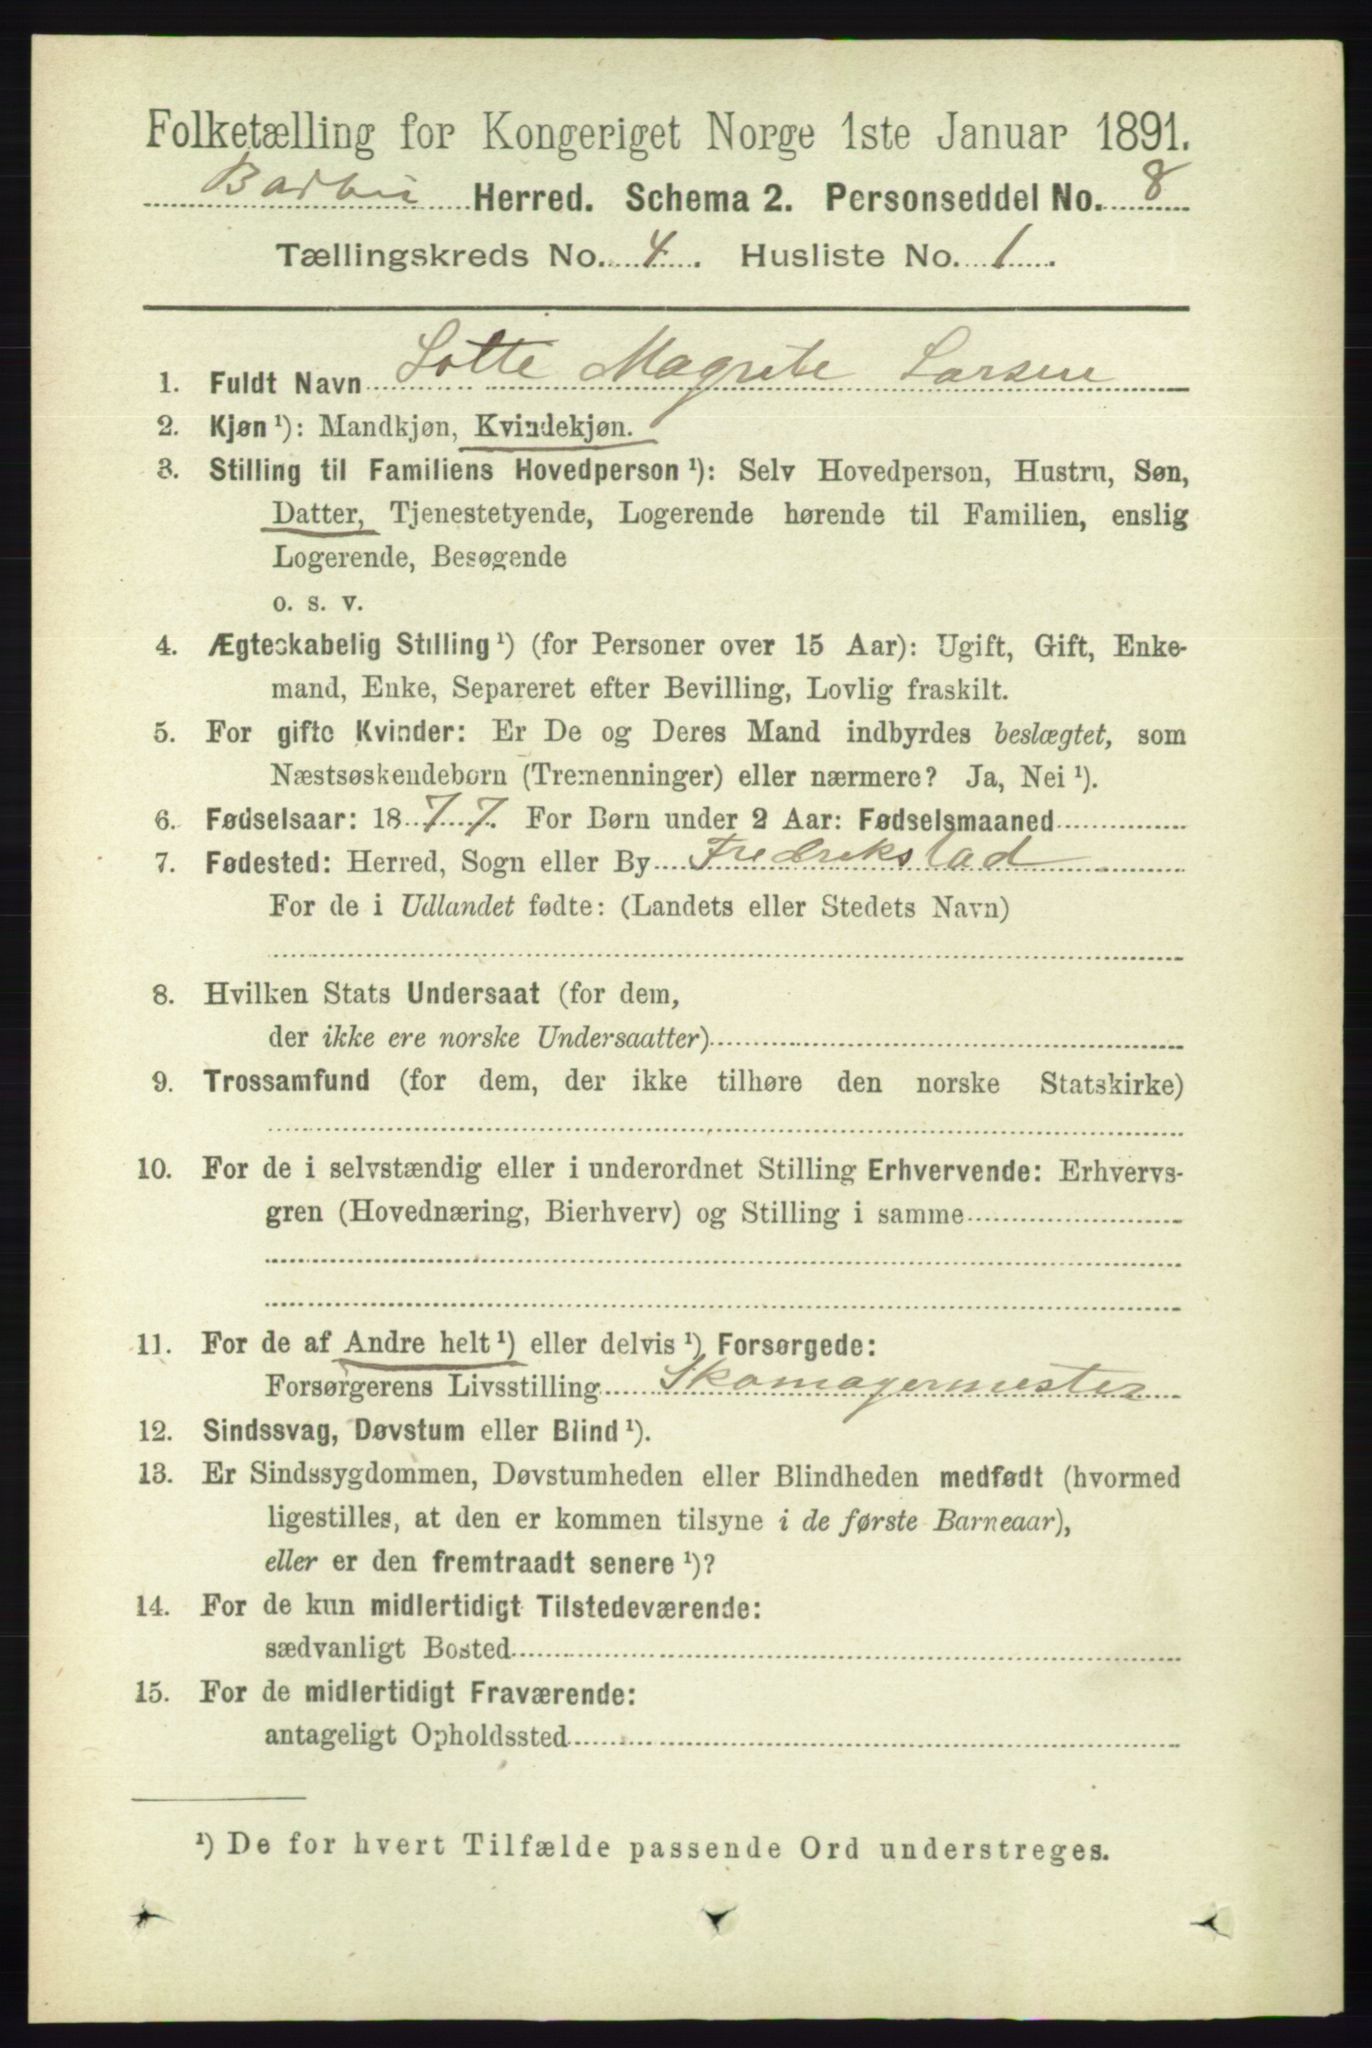 Folketælling for Kongeriget Norge 1ste Januar 1891.
Barbu Herred. Schema 2. Personseddel No. 8
Tællingskreds No. 4. Husliste No. 1.
1. Fuldt Navn Lotte Magrete Larsen
2. Kjøn ¹): Mandkjøn, Kvindekjøn.
3. Stilling til Familiens Hovedperson ¹): Selv Hovedperson, Hustru, Søn,
Datter, Tjenestetyende, Logerende hørende til Familien, enslig
Logerende, Besøgende
o. s. v.
4. Ægteskabelig Stilling ¹) (for Personer over 15 Aar): Ugift, Gift, Enke-
mand, Enke, Separeret efter Bevilling, Lovlig fraskilt.
5. For gifte Kvinder: Er De og Deres Mand indbyrdes beslægtet, som
Næstsøskendebørn (Tremenninger) eller nærmere? Ja, Nei ¹).
6. Fødselsaar: 1877. For Børn under 2 Aar: Fødselsmaaned
7. Fødested: Herred, Sogn eller By Fredrikstad
For de i Udlandet fødte: (Landets eller Stedets Navn)
8. Hvilken Stats Undersaat (for dem,
der ikke ere norske Undersaatter)
9. Trossamfund (for dem, der ikke tilhøre den norske Statskirke)
10. For de i selvstændig eller i underordnet Stilling Erhvervende: Erhvervs-
gren (Hovednæring, Bierhverv) og Stilling i samme
11. For de af Andre helt ¹) eller delvis ¹) Forsørgede:
Forsørgerens Livsstilling Skomagermester
12. Sindssvag, Døvstum eller Blind ¹).
13. Er Sindssygdommen, Døvstumheden eller Blindheden medfødt (hvormed
ligestilles, at den er kommen tilsyne i de første Barneaar),
eller er den fremtraadt senere ¹)?
14. For de kun midlertidigt Tilstedeværende:
sædvanligt Bosted
15. For de midlertidigt Fraværende:
antageligt Opholdssted
¹) De for hvert Tilfælde passende Ord understreges.